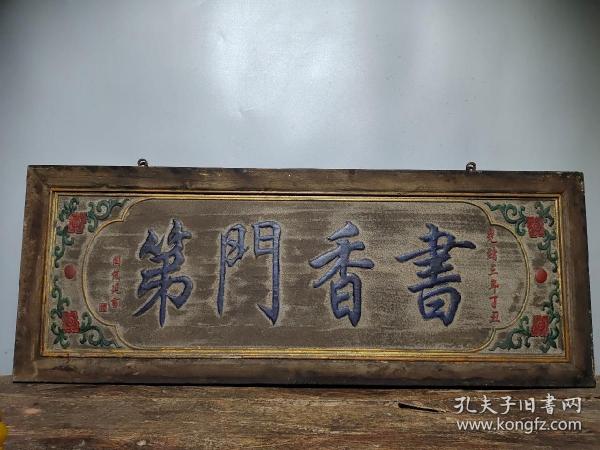 書香門第
光緒三年丁丑
孔夫子旧書网
www.kongfz.com